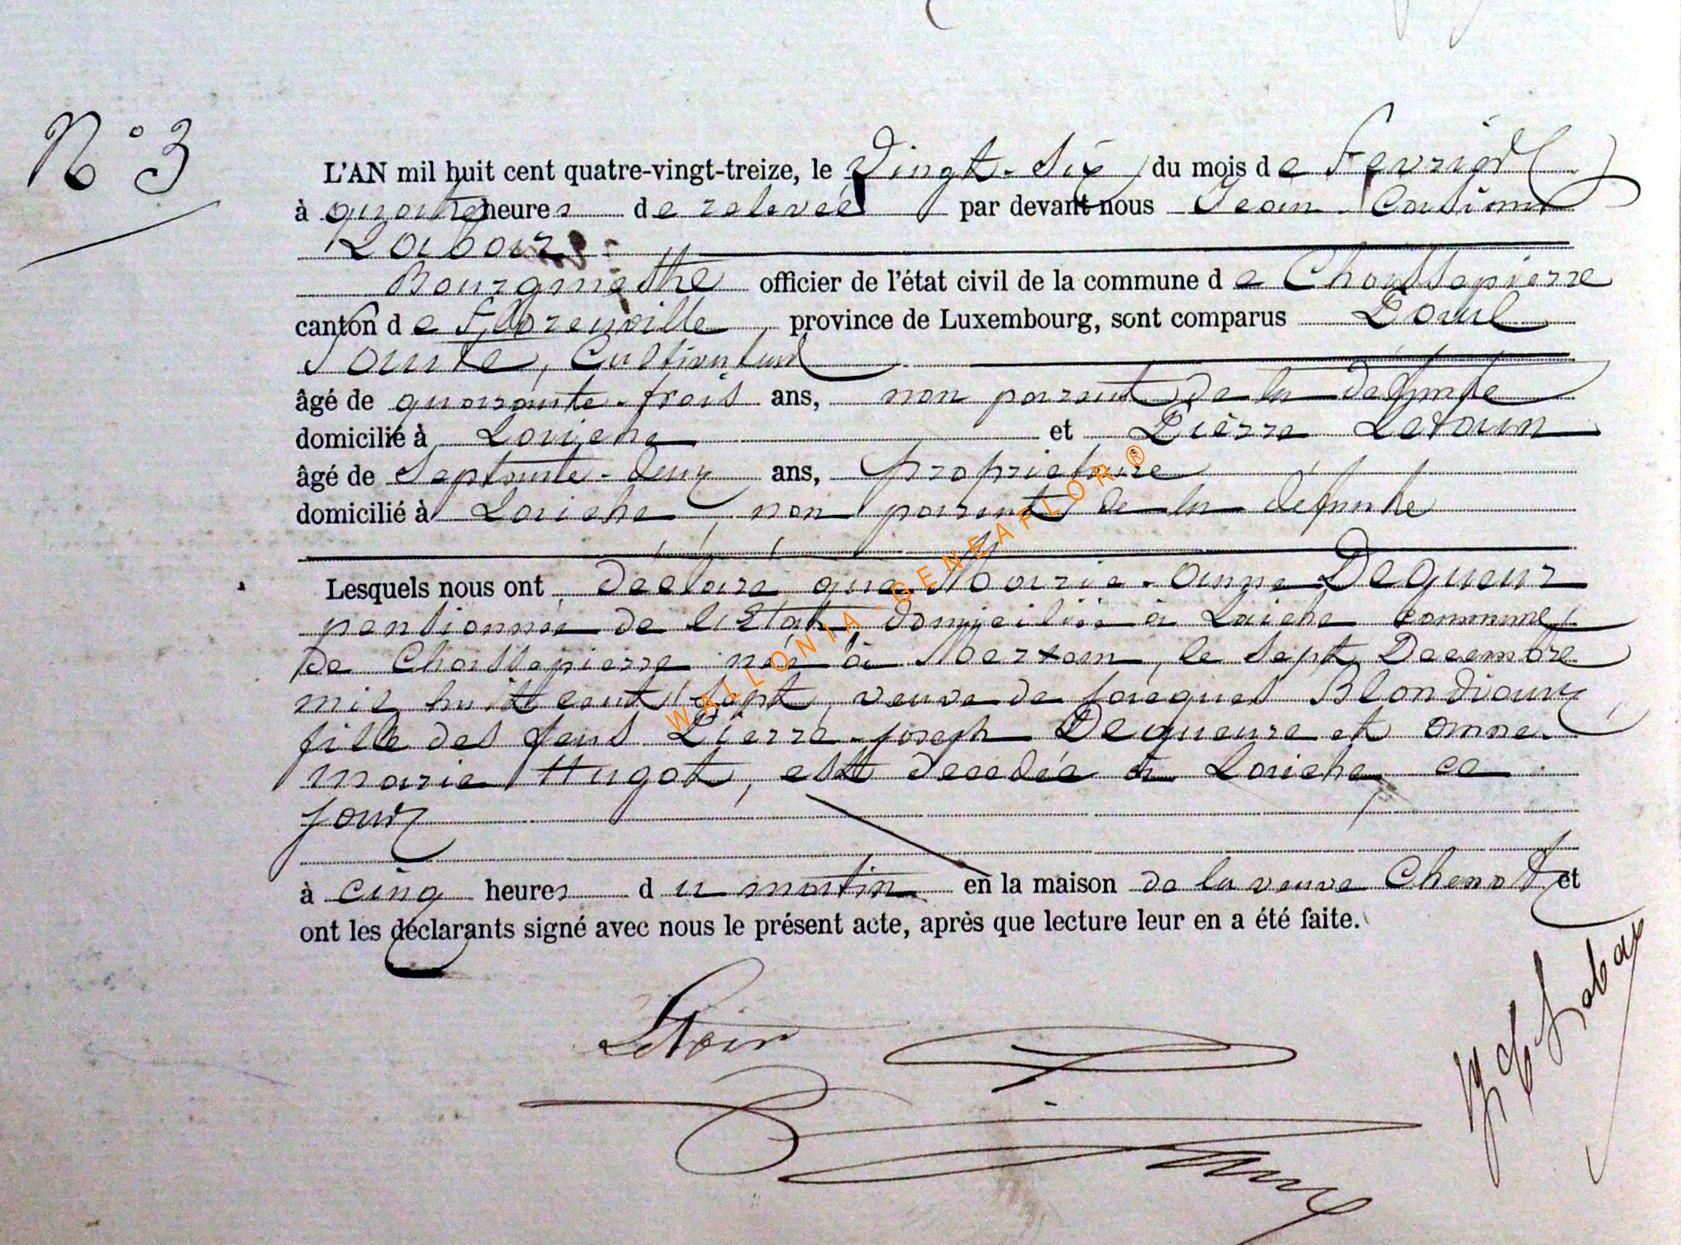 N° 3
L'AN mil huit cent quatre-vingt-treize, le Vingt-Six du mois de Fevrier
à quatre heures de relevée par devant nous Jean-Casimir
Labar
Bourgmestre officier de l'état civil de la commune de Chassepierre
canton de Florenville, province de Luxembourg, sont comparus Paul
, Cultivateur
âgé de quarante-trois ans, non parent de la défunte
domicilié à Laiche et Pièrre Letoun
âgé de Septante-deux ans, proprietaire
domicilié à Laiche, non parent de la défunte
Lesquels nous ont déclaré que Marie-Anne Dequeur
pensionnée de l'Etat, domiciliée à Laiche commune
de Chassepierre née à Mortain, le Sept Decembre
mil huit cent Sept, veuve de Jacques Blondiaux
fille des feus Pierre-Joseph Dequeure et anne-
marie Hugot, est decedée à Laiche, ce
jour
à cinq heures du matin en la maison de la veuve Chenot et
ont les déclarants signé avec nous le présent acte, après que lecture leur en a été faite.
WALLONIA-GENEAFLOR ®